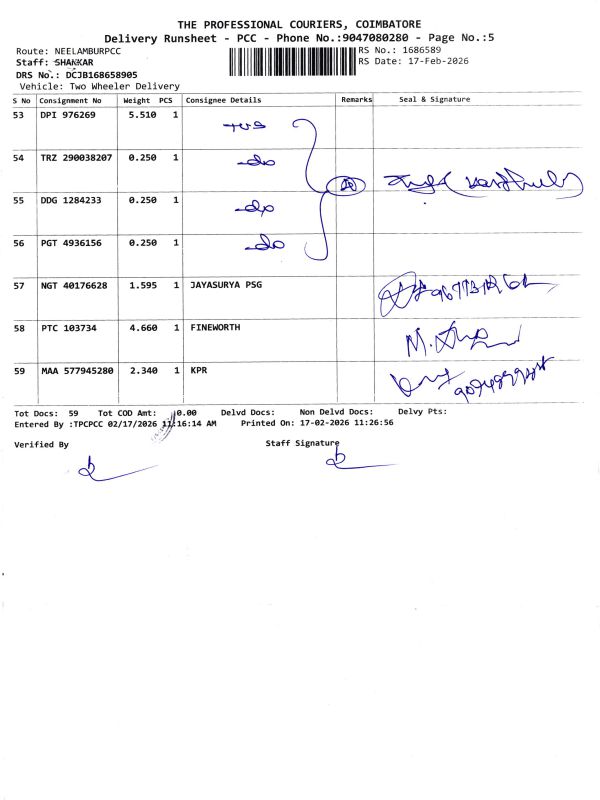 THE PROFESSIONAL COURIERS, COIMBATORE
Delivery Runsheet - PCC - Phone No.:9047080280 - Page No.:5
Route: NEELAMBURPCC RS No.: 1686589
Staff: SHANKAR RS Date: 17-Feb-2026
DRS No.: DCJB168658905
Vehicle: Two Wheeler Delivery
S No Consignment No Weight PCS Consignee Details Remarks Seal & Signature
53 DPI 976269 5.510 1
54 TRZ 290038207 0.250 1 -do
55 DDG 1284233 0.250 1 -do
56 PGT 4936156 0.250 1 -do
57 NGT 40176628 1.595 1 JAYASURYA PSG
58 PTC 103734 4.660 1 FINEWORTH
59 MAA 577945280 2.340 1 KPR
Tot Docs: 59 Tot COD Amt: 0.00 Delvd Docs: Non Delvd Docs: Delvy Pts:
Entered By :TPCPCC 02/17/2026 11:16:14 AM Printed On: 17-02-2026 11:26:56
Verified By Staff Signature